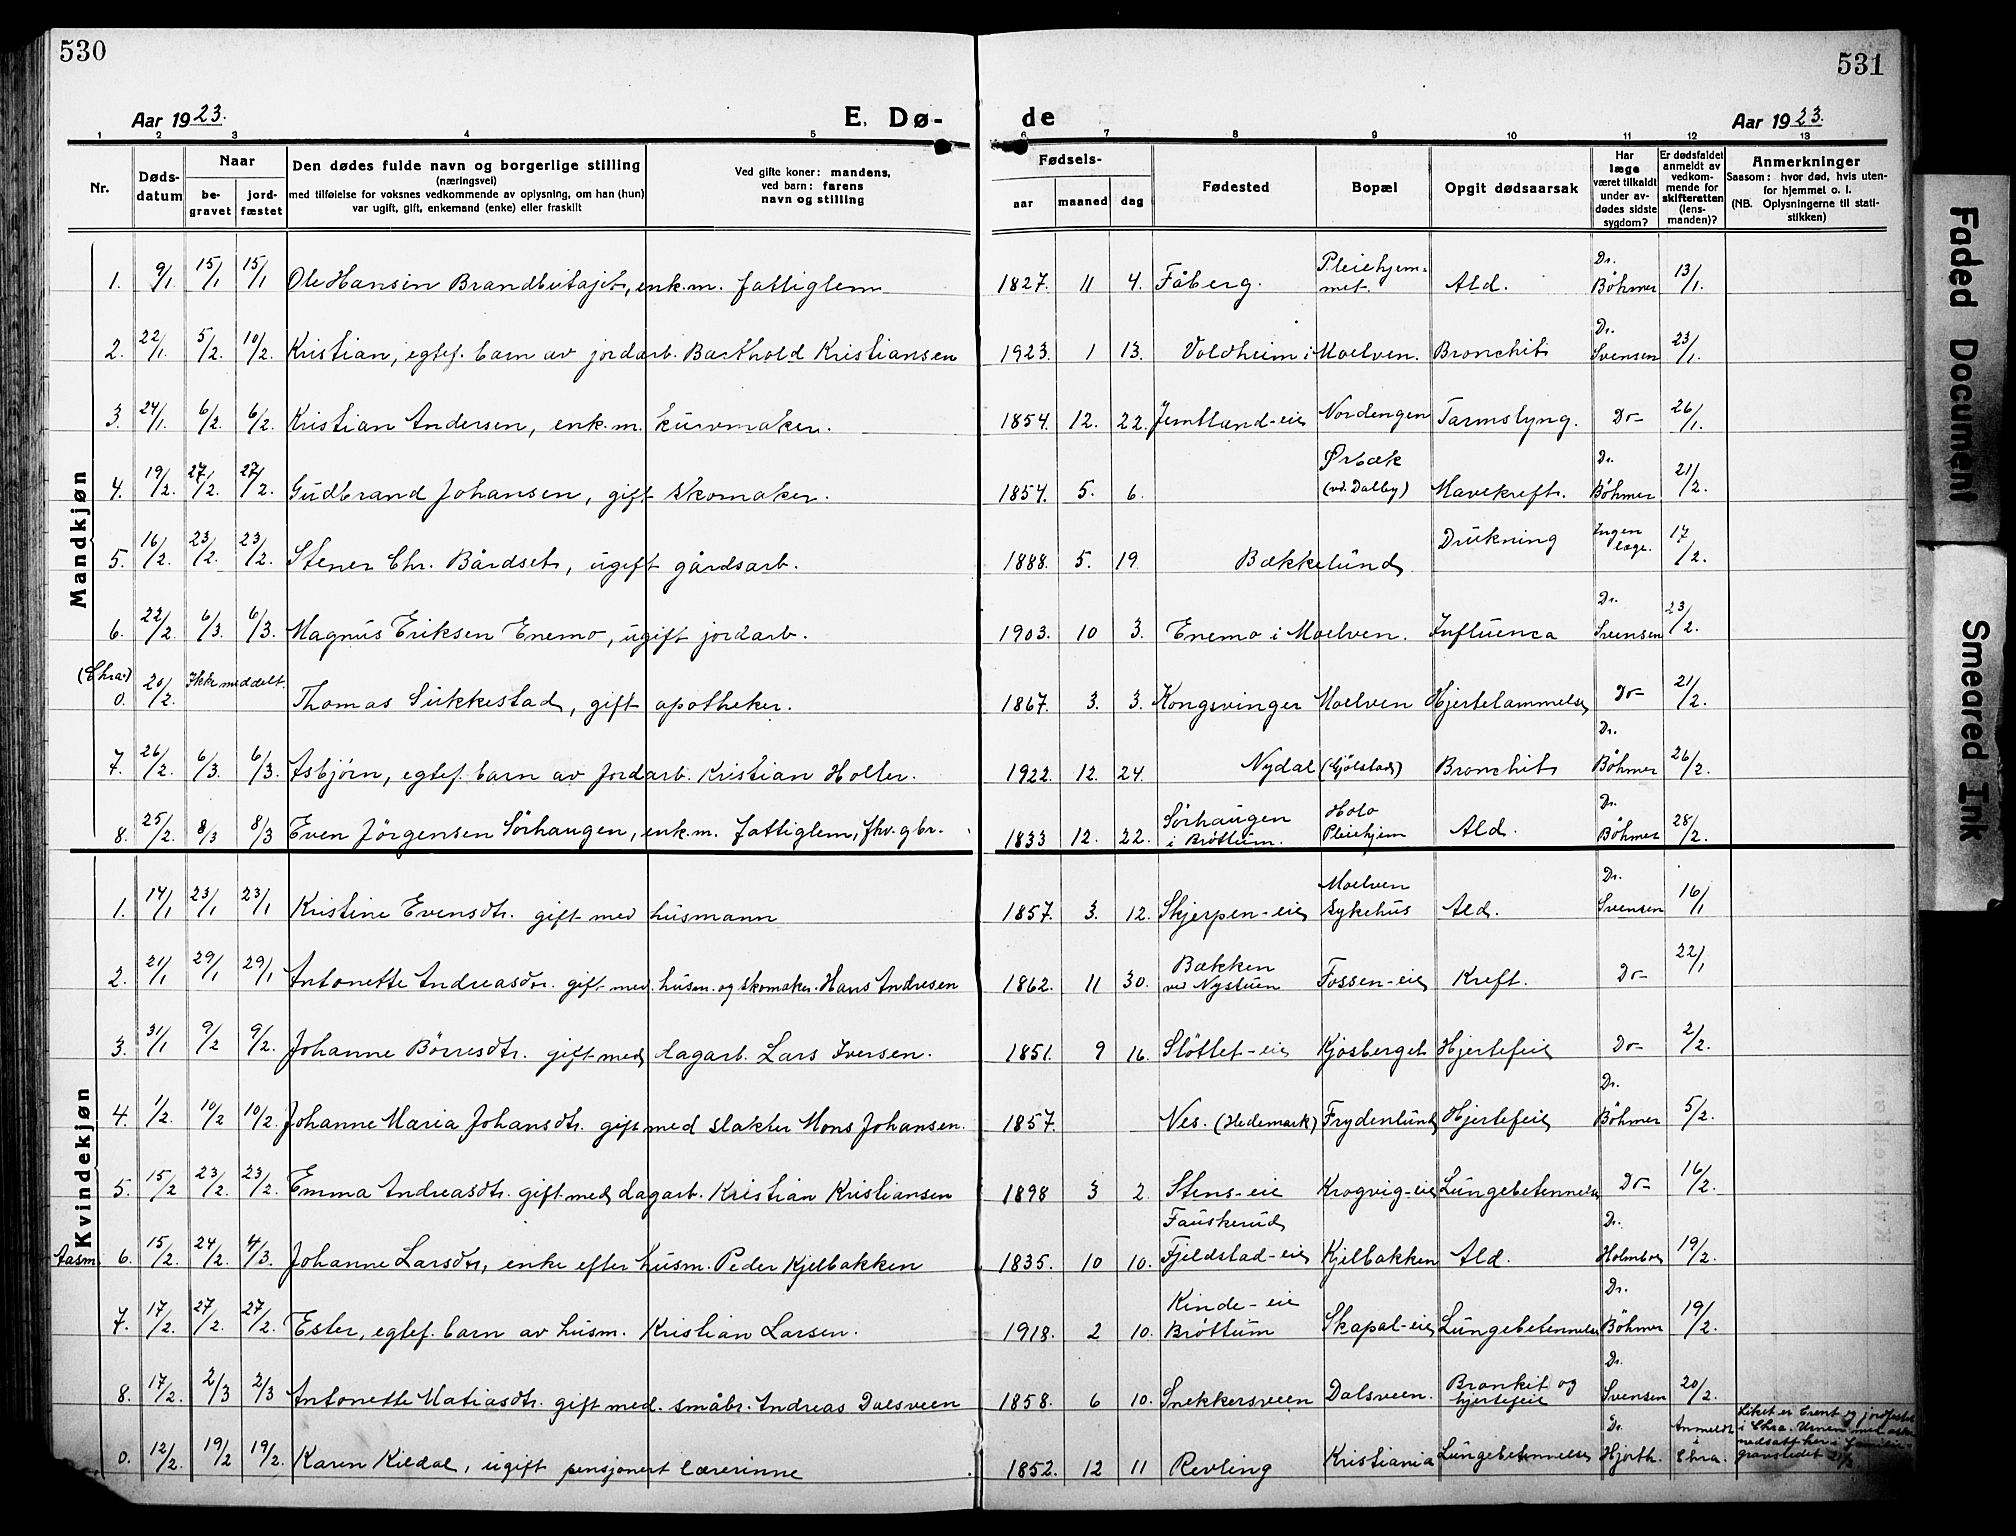 530
531
Aar 1923.
E. Dø-
de
Aar 1923.
1 2 3 4 5 6 7 8 9 10 11 12 13
Nr.
Døds-
datum
Naar
be-
gravet
jord-
fæstet
Den dødes fulde navn og borgerlige stilling
(næringsvei)
med tilføielse for voksnes vedkommende av oplysning, om han (hun)
var ugift, gift, enkemand (enke) eller fraskilt
Ved gifte koner: mandens,
ved barn: farens
navn og stilling
Fødsels-
aar maaned dag
Fødested
Bopæl
Opgit dødsaarsak
Har
læge
været tilkaldt
under av-
dødes sidste
sygdom?
Er dødsfaldet
anmeldt av
vedkom-
mende for
skifteretten
(lens-
manden)?
Anmerkninger
Saasom: hvor død, hvis uten-
for hjemmel o. l.
(NB. Oplysningerne til stati-
stikken)
Mandkjøn
1. 9/1 15/1 15/1 Ole Hansen Brandbutajet, enk.m. fattiglem 1827. 11 4. Fåberg. Pleiehjem-met. Ald. Dr. Böhmer 13/1.
2. 22/1. 5/2. 10/2. Kristian, egtef. barn av jordarb. Barthold Kristiansen 1923. 1 13. Voldheim i Moelven. Bronchit Dr. Svensen 23/1.
3. 24/1. 6/2. 6/2. Kristian Andersen, enk.m. kurvmaker. 1854. 12. 22. Jemtland-eie Nordengen Tarmslyng. Do- 26/1.
4. 19/2. 27/2. 27/2. Gudbrand Johansen, gift skomaker. 1857. 5. 6. Ørbæk (vd. Dalby) Mavekreft. Dr. Böhmer 21/2.
5. 16/2. 23/2. 23/2. Stener Chr. Bårdset, ugift gårdsarb. 1888. 5. 19. Bækkelund Drukning Ingen læge. 17/2.
6. 22/2. 6/3. 6/3. Magnus Eriksen Enemo, ugift jordarb. 1903. 10 3. Enemo i Moelven. Influenca Dr. Svensen 23/2.
(Chra.) 0. 20/2. Ikke meddelt. Thomas Sukkestad, gift apotheker. 1867. 3. 3. Kongsvinger Moelven Hjertelammelse Do- 21/2.
7. 26/2. 6/3. 6/3. Asbjørn, egtef. barn av jordarb. Kristian Holter. 1922. 12. 24. Nydal (Gjölstad) Bronchit Dr. Böhmer 26/2.
8. 25/2. 8/3 8/3 Even Jörgensen Sörhaugen, enk.m. fattiglem, fhv. gbr. 1833 12. 22. Sörhaugen i Bröttum. Holo Pleiehjem Ald. Dr. Böhmer 28/2.
Kvindekjøn
1. 14/1 23/1 23/1 Kristine Evensdtr. gift med husmann 1857. 3. 12. Skjerpen-eie Moelven sykehus Ald. Dr. Svensen 16/1
2. 21/1 29/1 29/1 Antonette Andreasdtr. gift med husm. og skomaker. Hans Andresen 1862. 11 30. Bækken ved Nystuen Fossen-eie Kreft. Do- 22/1
3. 31/1 9/2 9/2. Johanne Börresdtr. gift med dagarb. Lars Iversen. 1851. 9 16. Slöttet-eie Kjosberget Hjertefeil Do- 2/2.
4. 1/2. 10/2 10/2. Johanne Maria Johansdtr. gift med slakter Mons Johansen. 1857. Ves. (Hedemark) Frydenlund Hjertefeil Dr. Böhmer 5/2.
5. 15/2 23/2. 23/2. Emma Andreasdtr. gift med dagarb. Kristian Kristiansen 1898 3 2. Stens-eie Krogvig-eie Lungebetennelse Do- 16/2.
Aasm. 6. 15/2. 24/2. 4/3. Johanne Larsdtr, enke efter husm. Peder Kjelbakken 1835. 10 10. Fauskerud Fjeldstad-eie Kjelbakken Ald. Dr. Holmboe 19/2.
7. 17/2. 27/2. 27/2. Ester, egtef. barn av husm. Kristian Larsen. 1918. 2 10. Kinde-eie Bröttum Skapal-eie Lungebetennelse Dr. Böhmer 19/2.
8. 17/2. 2/3 2/3 Antonette Matiasdtr. gift med. småbr. Andreas Dalsveen 1858. 6 10. Snekkersveen Dalsveen. Bronkit og hjertefeil Dr. Svensen 20/2.
0. 12/2. 19/2 19/2. Karen Kildal, ugift pensjonert lærerinne 1852. 12 11 Revling Kristiania Lungebetennelse Dr. Hjorth. Anmeldt i Chra. Liket er brent og jordfestet i Chra. Urnen med aske nedsatt her i familie-gravstedet
Faded Document
Smeared Ink